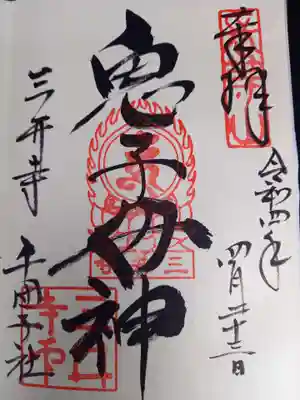 奉拝
令和四年
四月二十三日
鬼子母神
三井寺
千団子社